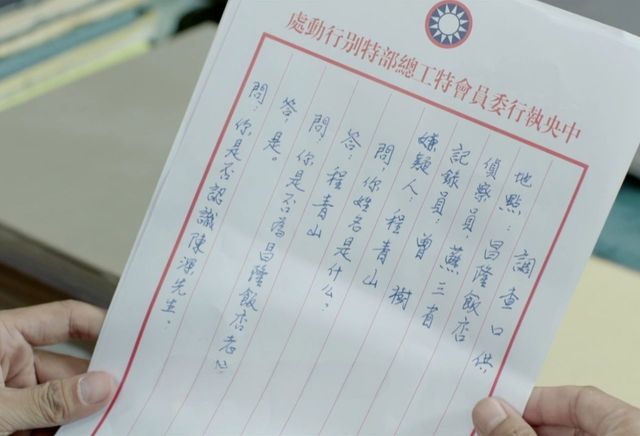 中央執行委員會特工總部特別行動處
調查口供
地點:昌隆飯店
偵察員:蘇三省
記錄員:曾樹
嫌疑人:程青山
問:你姓名是什么?
答:程青山
問:你是否為昌隆飯店老
答:是。
問:你是否認識陳深先生?